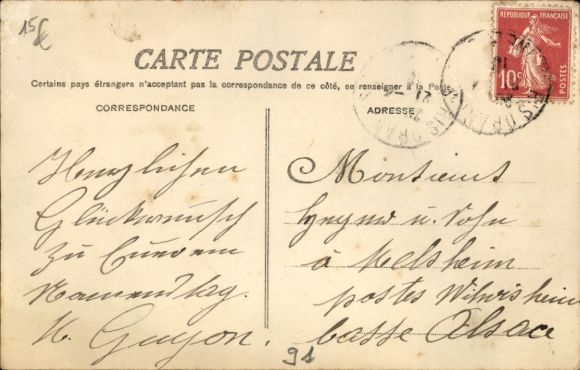 15€
CARTE POSTALE
Certains pays étrangers n'acceptant pas la correspondance de ce côté, se renseigner à la Poste
CORRESPONDANCE
ADRESSE
RÉPUBLIQUE FRANÇAISE
10c
POSTES
Herzlichen
Glückwunsch
zu Eurem
Namenstag.
Guyon.
Monsieur
u. Sohn
à Melsheim
postes Wilwisheim
basse Alsace
91